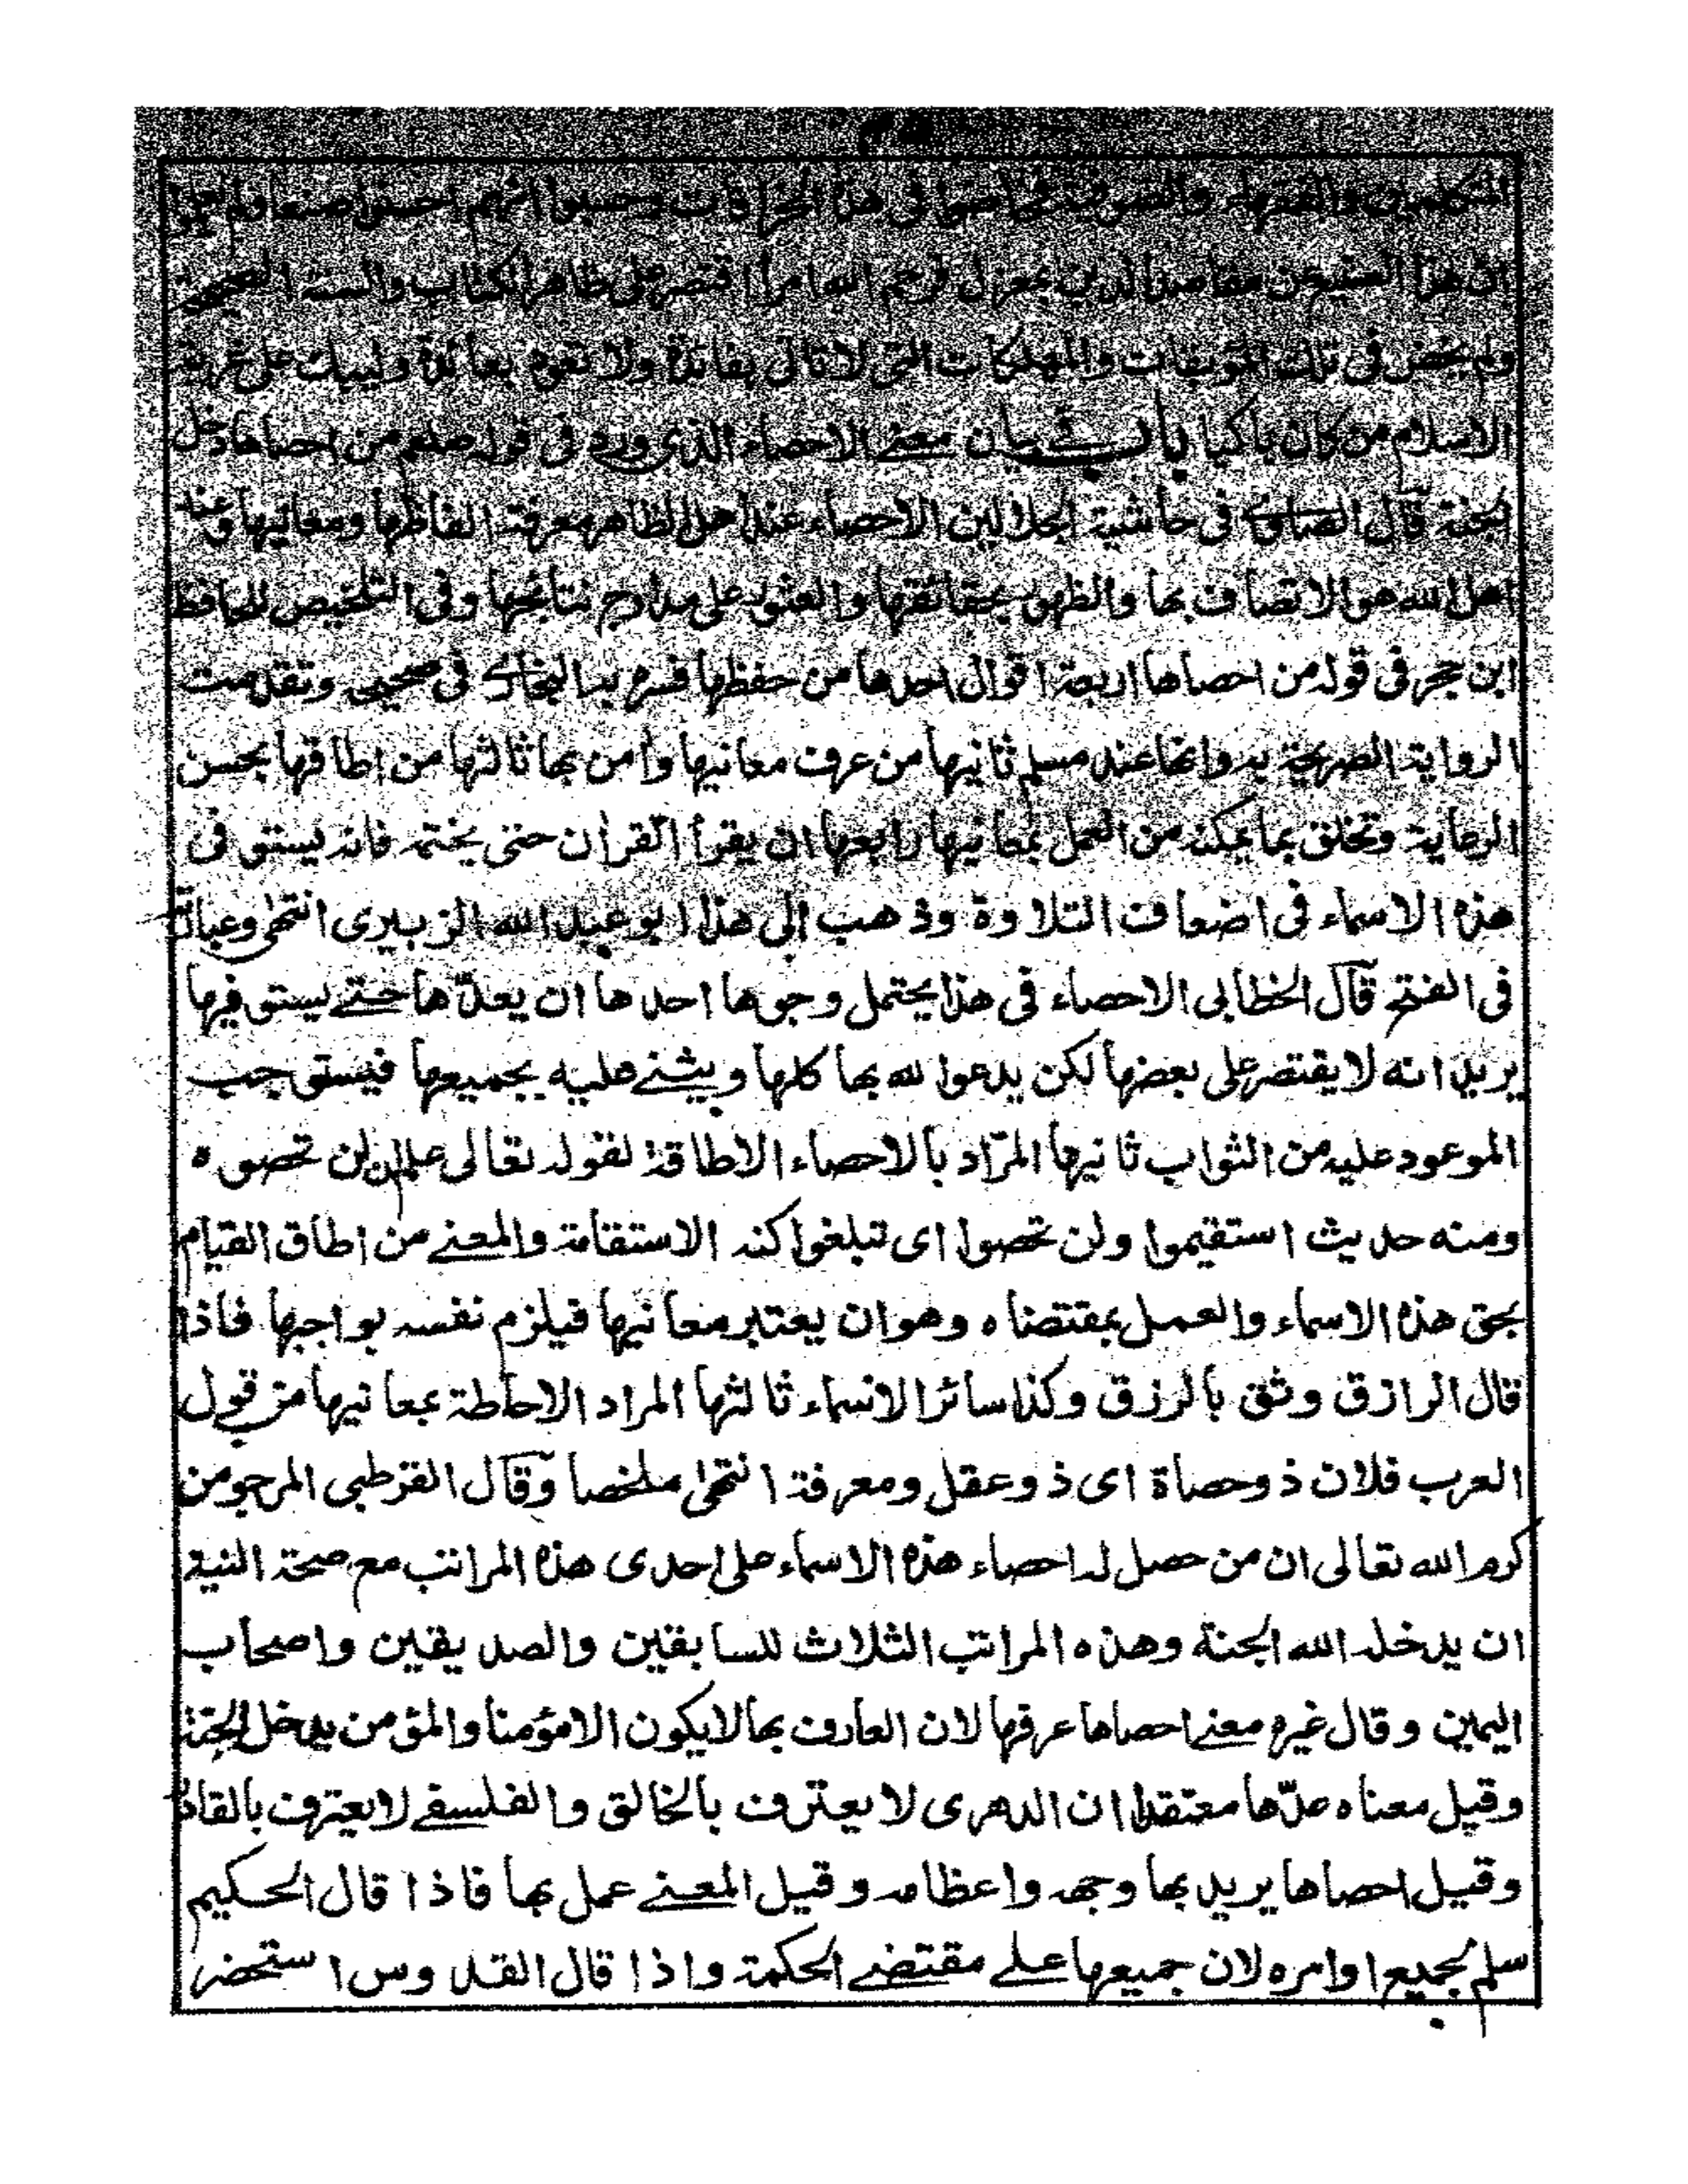 المتكلمين والفقهاء والصوفية في هذا الخرافات وحسبوا انهم احسنوا صنعا ولم يعلموا
ان هذا الصنيع عن مقاصد الدين بمعزل فرحم الله امرأ اقتصر على ظاهر الكتاب والسنة الصحيحة
ولم يخض في تلك الموبقات والمهلكات التي لا تاتي بفائدة ولا تعود بعائدة وليبك على غربة
الاسلام من كان باكيا باب في بيان معنى الاحصاء الذي ورد في قوله صلعم من احصاها دخل
الجنة قال الصاوي في حاشية الجلالين الاحصاء عند اهل الظاهر معرفة الفاظها ومعانيها وعند
اهل الله هو الاتصاف بها والظهور بحقائقها والعثور على مدارج نتائجها وفي التلخيص للحافظ
ابن حجر في قوله من احصاها اربعة اقوال احدها من حفظها فسره به البخاري في صحيحه وتقدمت
الرواية الصريحة به وانها عند مسلم ثانيها من عرف معانيها وامن بها ثالثها من اطاقها بحسن
الرعاية وتخلق بما يمكنه من العمل بمعانيها رابعها ان يقرأ القرأن حتى يختمه فانه يستوفى
هذه الاسماء في اضعاف التلاوة وذهب الى هذا ابو عبد الله الزبيرى انتهى وعبارة
في الفتح قال الخطابى الاحصاء في هذا يحتمل وجوها احدها ان يعدّها حتى يستوفيها
يريد انه لا يقتصر على بعضها لكن يدعوا لله بها كلها ويثني عليه بجميعها فيستوجب
الموعود عليه من الثواب ثانيها المراد بالاحصاء الاطاقة لقوله تعالى علم ان لن تحصوه
ومنه حديث استقيموا ولن تحصوا اى تبلغوا كنه الاستقامة والمعنى من اطاق القيام
بحق هذه الاسماء والعمل بمقتضاه وهو ان يعتبر معانيها فيلزم نفسه بواجبها فاذا
قال الرازق وثق بالرزق وكذا سائر الاسماء ثالثها المراد الاحاطة بمعانيها من قول
العرب فلان ذو حصاة اى ذو عقل ومعرفة انتهى ملخصا وقال القرطبى المرجو من
كرم الله تعالى ان من حصل له احصاء هذه الاسماء على احدى هذه المراتب مع صحة النية
ان يدخله الله الجنة وهذه المراتب الثلاث للسابقين والصديقين واصحاب
اليمين وقال غيره معنى احصاها عرفها لان العارف بها لا يكون الا مؤمنا والمؤمن يدخل الجنة
وقيل معناه عدّها معتقدا ان الدهرى لا يعترف بالخالق والفلسفي لا يعترف بالقادر
وقيل احصاها يريد بها وجهه واعظامه وقيل المعنى عمل بها فاذا قال الحكيم
سلم بجميع اوامره لان جميعها على مقتضى الحكمة واذا قال القدوس استحضر